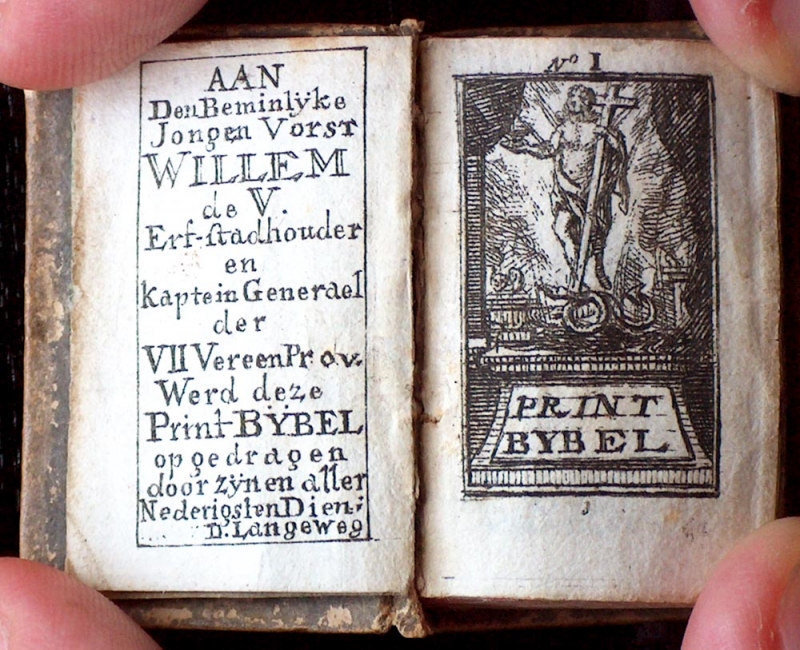 AAN
Den Beminlyke
Jongen Vorst
WILLEM
de V.
Erf-stadhouder
en
Kaptein Generael
der
VII Vereen Prov.
Werd deze
Print-BYBEL
opgedragen
door zÿnen aller
Nederigsten Dien:
D. Langeweg
No I
PRINT
BYBEL